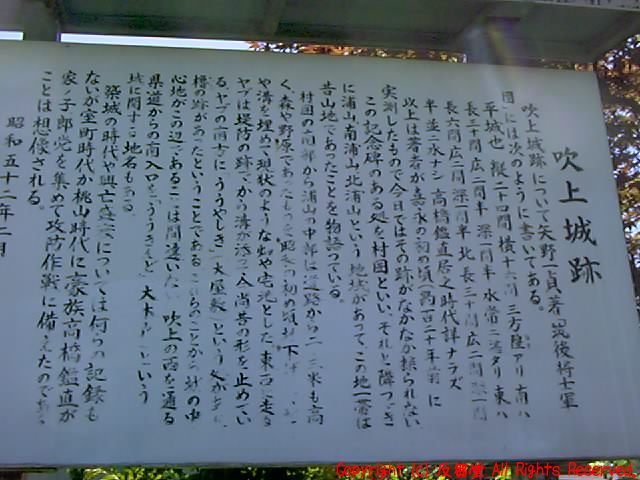 吹上城跡
吹上城跡について矢野一貞著「筑後将士軍
図」には次のように書いてある。
平城也 縦二十四間 横十六間 三方陸アリ 南ハ
長三十間 広二間半 深一間半 水常ニ湛タリ 東ハ
長六間 広二間 深二間半 北 長二十間 広二間 深一間
半 並ニ水ナシ 高橋鑑直居之時代詳ナラズ
以上は著者が嘉永の初の頃(凡百二十年前)に
実測したもので今日ではその跡がなかなか採られない
この記念碑のある処を村囲といい、それと隣つづき
に浦山、南浦山、北浦山という地域があって、この地一帯は
昔山地であったことを物語っている。
村囲の南部から浦山の中部は道路から二、三米も高
く、森や野原であったものを昭和の初め頃
や溝を埋めて現状のような畑や宅地とした。東西に走る
ヤブは堤防の跡でから溝が添って入尚昔の形を止めてい
る。ヤブの南方に「ううやしき」(大屋敷)という処があり
櫓の跡があったということである。これらのことから城の中
心地がこの辺であることは間違いない。吹上の西を通る
県道からの南入口を「ううきど」(大木戸)という
城に関する地名もある。
築城の時代や興亡盛衰については何らの記録も
ないが室町時代か桃山時代に豪族高橋鑑直が
家ノ子郎党を集めて攻防作戦に備えたのである
ことは想像される。
昭和五十二年二月
Copyright (c) All Rights Reserved.